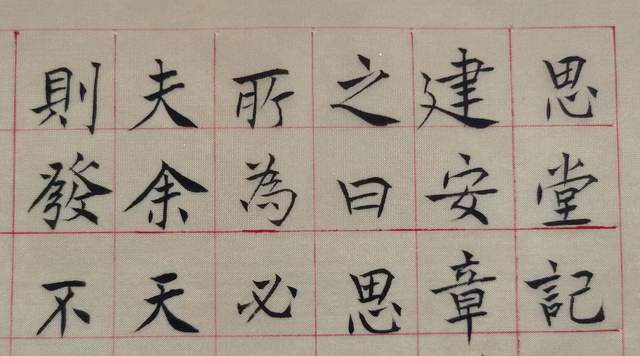 思堂記
建安章
之曰思
所為必
夫余天
則發不